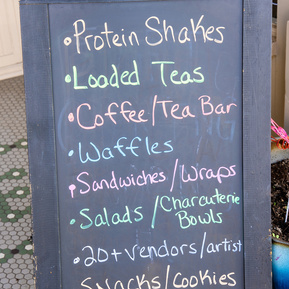 • Protein Shakes
• Loaded Teas
• Coffee/Tea Bar
• Waffles
• Sandwiches/Wraps
• Salads/Charcuterie
Bowls
• 20+ vendors/artist
Snacks/Cookies